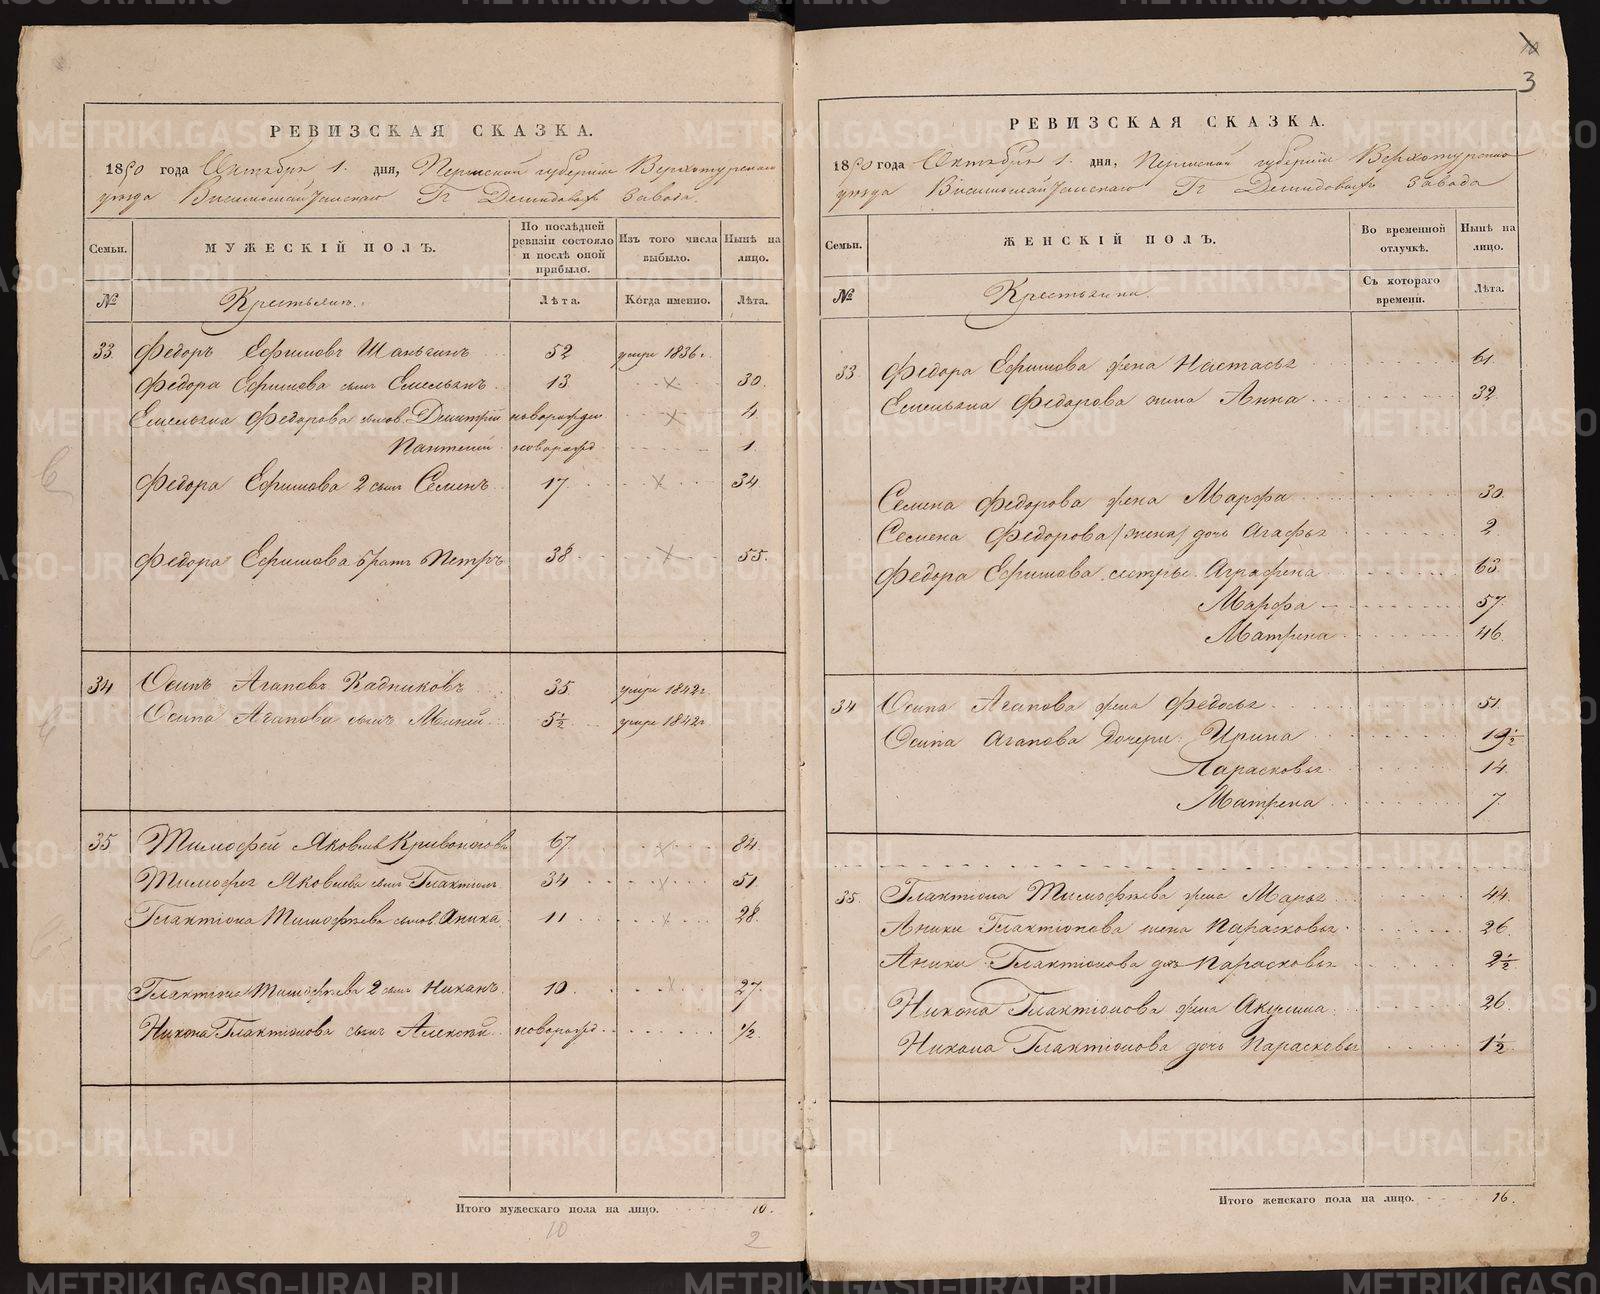 РЕВИЗСКАЯ СКАЗКА.
1850 года Октября 1. дня, Пермской губернiи Верхотурскаго
уѣзда Висимошайтанскаго Гг Демидовыхъ Завода.
Семьи. МУЖЕСКIЙ ПОЛЪ. По послѣдней ревизiи состояло и послѣ оной прибыло. Изъ того числа выбыло. Нынѣ на лицо.
№ Крестьянъ. Лѣта. Когда именно. Лѣта.
33 Федоръ Ефимовъ Шаньгинъ 52 умре 1836 г.
Федора Ефимова сынъ Емельянъ 13 30.
Емельяна Федорова сынов. Дмитрiй новорожден 4
новорожд 1
Федора Ефимова 2 сынъ Семенъ 17 34
Федора Ефимова братъ Петръ 38 55.
34 Осипъ Агаповъ Кадниковъ 35 умре 1842 г
Осипа Агапова сынъ 5½ умре 1842 г
35 Тимофей Яковлевъ Кривоногов 67 84.
Тимофея Яковлева сынъ Галактiонъ 34 51.
Галактiона Тимофѣева сынов. Аника 11 28.
Галактiона Тимофѣева 2 сынъ Никанъ 10 27.
Никона Галактiонова сынъ Алексѣй новорожд 1/2.
Итого мужескаго пола на лицо. 10.
10
2
3
РЕВИЗСКАЯ СКАЗКА.
1850 года Октября 1. дня, Пермской губернiи Верхотурскаго
уѣзда Висимошайтанскаго Гг Демидовыхъ Завода
Семьи. ЖЕНСКIЙ ПОЛЪ. Во временной отлучкѣ. Нынѣ на лицо.
№ Крестьянки. Съ котораго времени. Лѣта.
33 Федора Ефимова жена Настасья 61.
Емельяна Федорова жена Анна 32
Семена Федорова жена Марфа 30.
Семена Федорова /жена/ дочь Агафья 2.
Федора Ефимова сестры Аграфена 63.
Марфа 57.
Матрена 46.
34 Осипа Агапова жена Федосья 51
Осипа Агапова дочери Ирина 19½
Парасковья 14.
Матрена 7.
35. Галактiона Тимофѣева жена Марья 44.
Аники Галактiонова жена Парасковья 26.
Аники Галактiонова дочь Парасковья 2½
Никона Галактiонова жена Акулина 26.
Никона Галактiонова дочь Парасковья 1½
Итого женскаго пола на лицо. 16.
METRIKI.GASO-URAL.RU